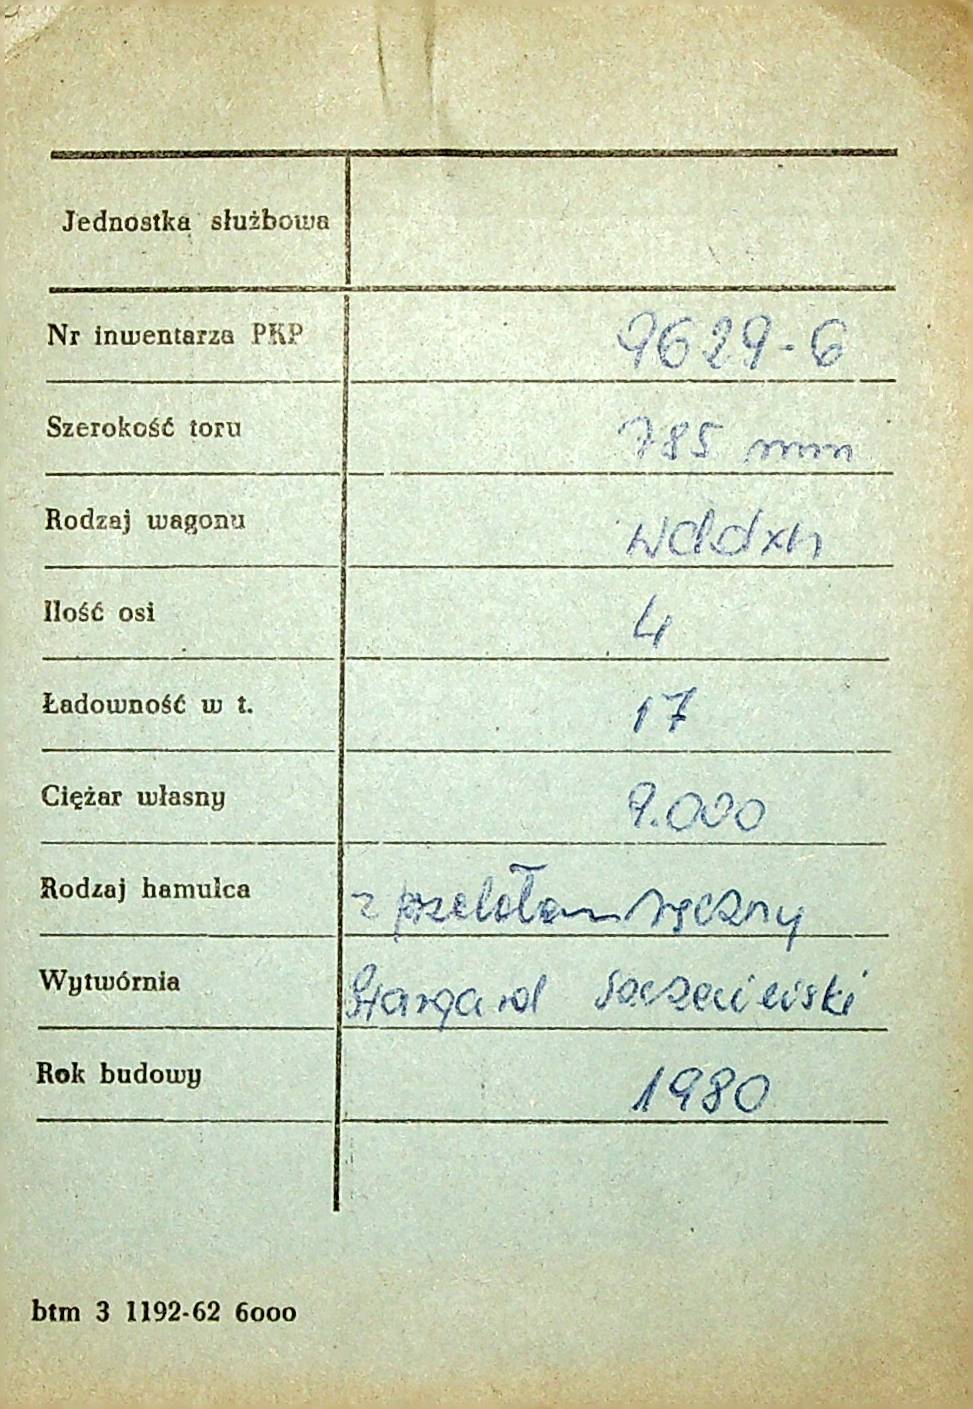 Jednostka służbowa
Nr inwentarza PKP 9629-6
Szerokość toru 785 mm
Rodzaj wagonu Wddxh
Ilość osi 4
Ładowność w t. 17
Ciężar własny 9.000
Rodzaj hamulca z przelotem ręczny
Wytwórnia Stargard Szczeciński
Rok budowy 1980
btm 3 1192-62 6000